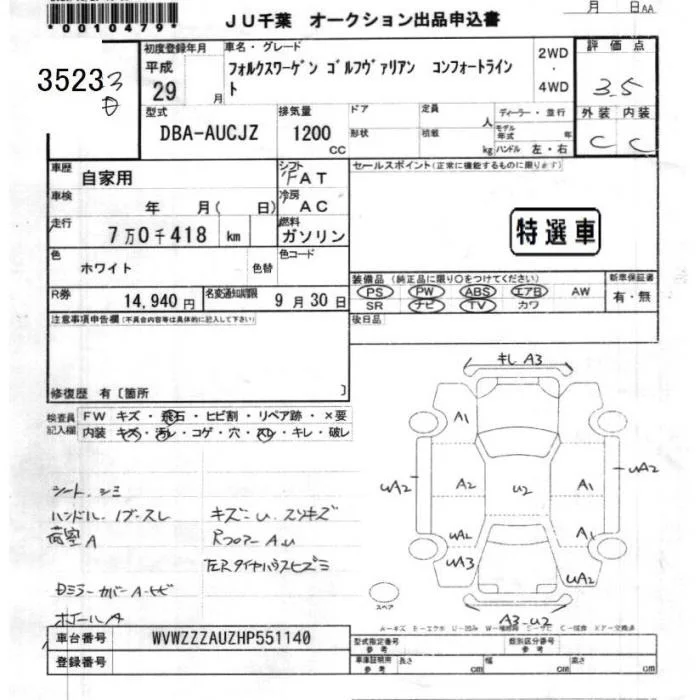 *0010479*
JU千葉 オークション出品申込書
月 日AA
35233
日
初度登録年月
平成
29 月
車名・グレード
フォルクスワーゲン ゴルフヴァリアン コンフォートライン
ト
2WD
・
4WD
評価点
3.5
外装 内装
C C
型式
DBA-AUCJZ
排気量
1200
CC
ドア
形状
定員
人
積載
kg
ディーラー・並行
モデル
年式 年
ハンドル 左・右
車歴
自家用
シフト
FAT
車検
年 月( 日)
冷房
AC
走行
7万0千418 km
燃料
ガソリン
色
ホワイト
色替
色コード
R券
14,940円
名変通知期限
9月30日
セールスポイント(正常に機能するものに限ります)
特選車
装備品 (純正品に限り〇をつけてください)
PS PW ABS エアB AW
SR ナビ TV カワ
新車保証書
有・無
注意事項申告欄(不具合内容等は具体的に記入して下さい)
後日品
修復歴 有〔箇所 〕
検査員
記入欄
FW キズ・飛石・ヒビ割・リペア跡・×要
内装 キズ・汚レ・コゲ・穴・スレ・キレ・破レ
シート、シミ
ハンドル、ノブスレ
荷室A
Dミラーカバー A・ヒビ
ホイールA
キズ=U、スリキズ
RフロアーAU
左Rタイヤハウスヒズミ
キレ A3
A1
UA2
A2
U2
A2
UA2
UA2
A1
UA3
UA2
A3-U2
スペア
A-キズ E-エクボ U-凹み W-補修跡 S-サビ C-腐食 X-要 XX-交換済
車台番号
WVWZZZAUZHP551140
登録番号
型式指定番号
参考
類別区分番号
参考
車庫証明用
参考
長さ cm
幅 cm
高さ cm